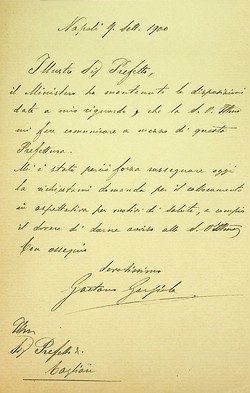 Napoli 9. Sett. 1900
Illustre Sig Prefetto,
il Ministero ha mantenute le disposizioni
date a mio riguardo, che la S. V. Ill.ma
mi fece comunicare a mezzo di questa
Prefettura.
Mi è stato perciò forza rassegnare oggi
la richiestami domanda per il collocamento
in aspettativa per motivi di salute, e compio
il dovere di darne avviso alla S. V. Ill.ma
Con ossequio
Devotissimo
Gaetano
Sig Prefetto di
Cagliari